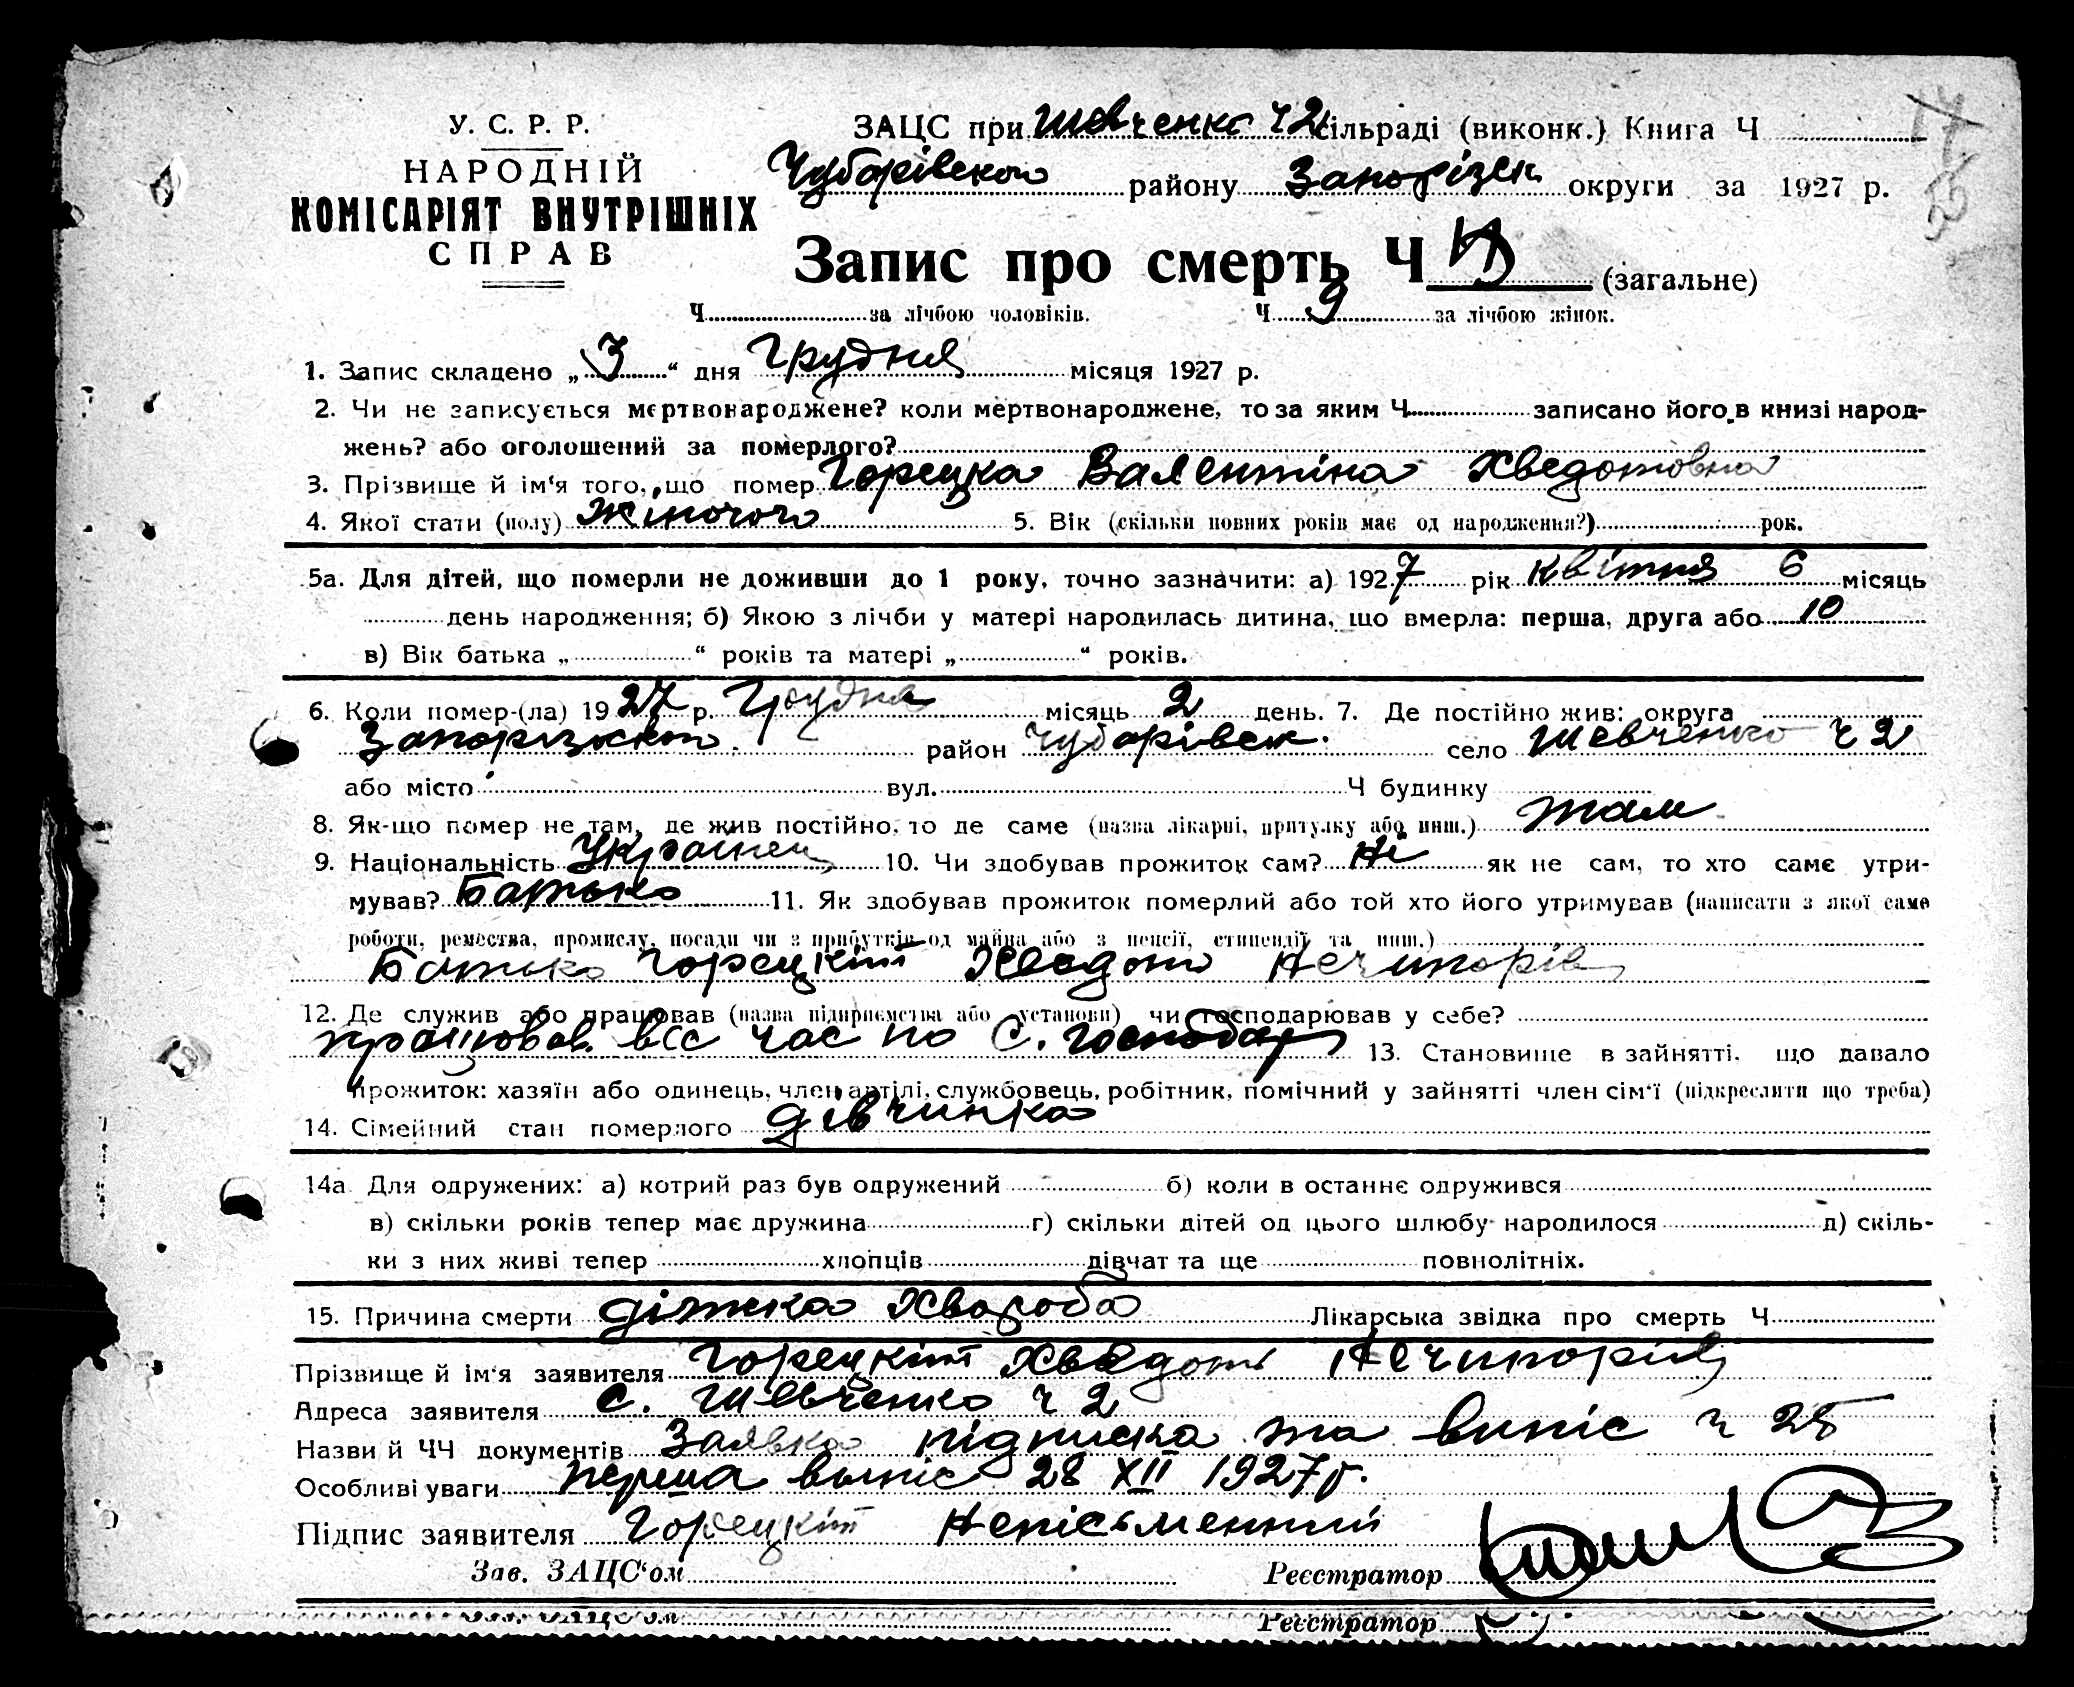 У. С. Р. Р.
НАРОДНІЙ
КОМІСАРІЯТ ВНУТРІШНІХ
СПРАВ
ЗАЦС при Шевченко ч 2 сільраді (виконк.) Книга Ч
Чубарівського району Запорізьк округи за 1927 р.
Запис про смерть Ч (загальне)
Ч за лічбою чоловіків. Ч 9 за лічбою жінок.
1. Запис складено „3“ дня Грудня місяця 1927 р.
2. Чи не записується мертвонароджене? коли мертвонароджене, то за яким Ч записано його в книзі народ-
жень? або оголошений за померлого?
3. Прізвище й ім‘я того, що помер Горецка Валентіна Хведотовна
4. Якої стати (полу) Жіночого 5. Вік (скільки повних років має од народження?) рок.
5а. Для дітей, що померли не доживши до 1 року, точно зазначити: а) 1927 рік квітня 6 місяць
день народження; б) Якою з лічби у матері народилась дитина, що вмерла: перша, друга або 10
в) Вік батька „ “ років та матері „ “ років.
6. Коли помер-(ла) 1927 р. Грудня місяць 2 день. 7. Де постійно жив: округа
Запорізького район Чубарівськ. село Шевченко ч 2
або місто вул. Ч будинку
8. Як-що помер не там, де жив постійно, то де саме (назва лікарні, притулку або инш.) там
9. Національність Українец 10. Чи здобував прожиток сам? Ні як не сам, то хто саме утри-
мував? Батько 11. Як здобував прожиток померлий або той хто його утримував (написати з якої саме
роботи, ремества, промислу, посади чи з прибутків од майна або з пенсії, стипендії та инш.)
Батько Горецкій Хведот Нечипорів
12. Де служив або працював (назва підприємства або установи) чи господарював у себе?
працював все час по С. господар 13. Становище в зайнятті, що давало
прожиток: хазяїн або одинець, член артілі, службовець, робітник, помічний у зайнятті член сім‘ї (підкреслити що треба)
14. Сімейний стан померлого дівчинка
14а Для одружених: а) котрий раз був одружений б) коли в останнє одружився
в) скільки років тепер має дружина г) скільки дітей од цього шлюбу народилося д) скіль-
ки з них живі тепер хлопців дівчат та ще повнолітніх.
15. Причина смерти дітска Хвороба Лікарська звідка про смерть Ч
Прізвище й ім‘я заявителя Горецкій Хведот Нечипорів
Адреса заявителя с. Шевченко ч 2
Назви й ЧЧ документів Заявка підписка та випіс ч 25
Особливі уваги перша выпіс 28 XII 1927 г.
Підпис заявителя Горецкій Непісьменний
Зав. ЗАЦС‘ом Реєстратор
Зав. ЗАЦС‘ом Реєстратор